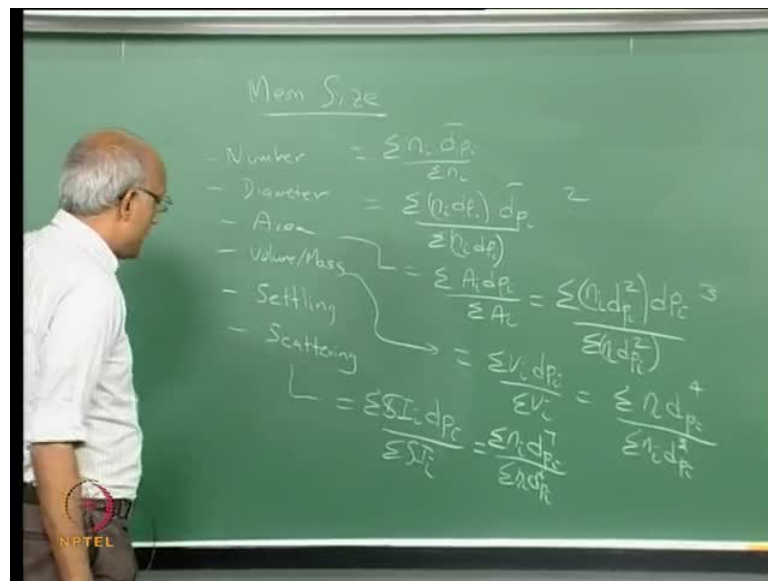 Mean Size
- Number = Σ nᵢ d̄pᵢ / Σnᵢ
- Diameter = Σ(nᵢ dpᵢ) d̄pᵢ / Σ(nᵢ dpᵢ) 2
- Area = Σ Aᵢ dpᵢ / Σ Aᵢ = Σ(nᵢ dpᵢ²) dpᵢ / Σ(nᵢ dpᵢ²) 3
- Volume/Mass = Σ Vᵢ dpᵢ / Σ Vᵢ = Σ nᵢ dpᵢ⁴ / Σ nᵢ dpᵢ³
- Settling
- Scattering = Σ SIᵢ dpᵢ / Σ SIᵢ = Σ nᵢ dpᵢ⁷ / Σ nᵢ dpᵢ⁶
NPTEL